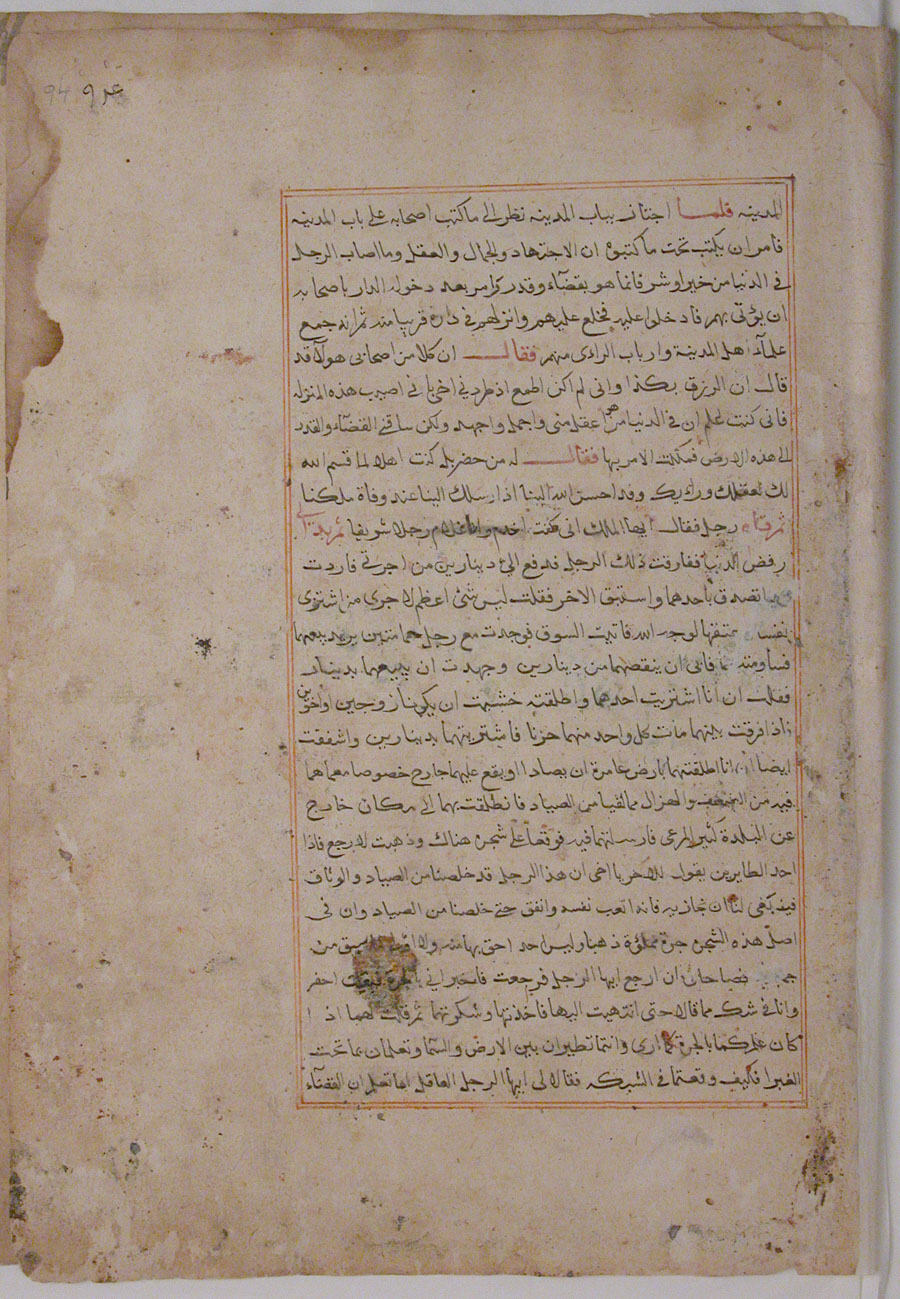 94 ۹٤
المدينه فلمـــا اجتاز بباب المدينه نظر الى ما كتب اصحابه على باب المدينه
فامر ان يكتب تحت ما كتبوه ان الاجتهاد والجمال والعقل وما اصاب الرجل
في الدنيا من خير او شر فانما هو بقضآء وقدر بعد دخوله الدار باصحابه
ان يؤتى بهم فادخلوا عليه فخلع عليهم وانزلهم في داره قريبا منه ثم انه جمع
علمآء اهل المدينة وارباب الراى منهم فقالـــ ان كلا من اصحابي هولآء قد
قال ان الرزق بكذا وانى لم اكن اطمع اذ طردني اخي باني اصيب هذه المنزله
فانى كنت اعلم ان في الدنيا من هو اعقل منى واجمل واجهد ولكن ساقني القضآء والقدر
الى هذه الارض فملكت الامر بها فقالـــ له من حضر بل كنت اهلا لما قسم الله
لك لعقلك ورايك وقد احسن الله الينا اذ ارسلك الينا عند وفاة ملكنا
ثم قام رجل فقال ايها الملك انى كنت اخدم وانا غلام رجلا شريفا ثم بدا لى
رفض الدنيا ففارقت ذلك الرجل فدفع الي دينارين من اجرتي فاردت
اتصدق باحدهما واستبق الاخر فقلت ليس شئ اعظم لاجرى من اشترى
نفسا يعتقها لوجه الله فاتيت السوق فوجدت مع رجل حمامتين يريد بيعهما
فساومته فابى ان ينقصهما من دينارين وجهدت ان يبيعهما بدينار
فقلت ان انا اشتريت احدهما واطلقته خشيت ان يكونا زوجين او اخوين
فاذا افرقت بينهما مات كل واحد منهما حزنا فاشتريتهما بدينارين واشفقت
ايضا ان انا اطلقتهما بارض عامرة ان يصادا او يقع عليهما جارح خصوصا مع ما هما
فيه من الضعف والهزال مما لقيا من الصياد فانطلقت بهما الى مكان خارج
عن البلدة كثير المرعى فارسلتهما فيه فوقعا على شجره هناك وذهبت لارجع فاذا
احد الطايرين يقول للاخر يا اخى ان هذا الرجل قد خلصنا من الصياد والوثاق
فيه كفى لنا ان نجازيه فانه اتعب نفسه وانفق حتى خلصنا من الصياد وان فى
اصل هذه الشجره جرة مملؤة ذهبا وليس احد احق بها منه
فصاحا بى ان ارجع ايها الرجل فرجعت فاخبرانى بالجرة فبقيت احفر
وانا في شك مما قالا حتى انتهيت اليها فاخذتها وشكرتهما ثم قلت لهما اذا
كان علمكما بالجرة كما ارى وانتما تطيران بين الارض والسما وتعلمان بما تحت
الغبرا فكيف وقعتما في الشبكه فقالا لى ايها الرجل العاقل اما تعلم ان القضآء